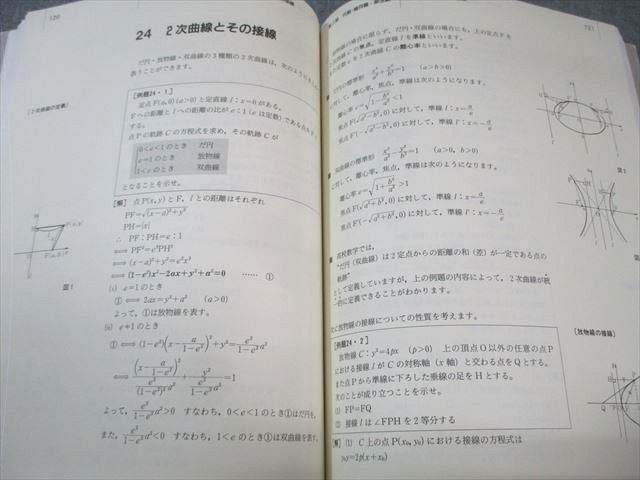 120
24　2次曲線とその接線
だ円・放物線・双曲線の3種類の2次曲線は，次のように
扱うことができます．
[2次曲線の定義]
[例題24・1]
定点F(a, 0)(a>0)と定直線 l：x=0がある．
Fへの距離と l への距離の比がe：1（eは定数）である点を
する．
点Pの軌跡Cの方程式を求め，その軌跡Cが
0<e<1のとき　だ円
e=1のとき　放物線
1<eのとき　双曲線
となることを示せ．
[解]　点P(x, y)とF，l との距離はそれぞれ
PF=√(x-a)²+y²
PH=|x|
∴　PF：PH=e：1
⟺ PF²=e²PH²
⟺ (x-a)²+y²=e²x²
⟺ (1-e²)x²-2ax+y²+a²=0　……①
(i)　e=1のとき
①⟺ 2ax=y²+a²　(a>0)
よって，①は放物線を表す．
(ii)　e≠1のとき
①⟺ (1-e²)(x-a/(1-e²))²+y²=e²/(1-e²)a²
⟺ (x-a/(1-e²))²/(e²/(1-e²)²a²)+y²/(e²/(1-e²)a²)=1
よって，e²/(1-e²)a²>0　すなわち，0<e<1のとき①はだ円を，
また，e²/(1-e²)a²<0　すなわち，1<eのとき①は双曲線を表す．
H
P(x, y)
F(a, 0)
図1
121
放物線の場合に限らず，だ円・双曲線の場合にも，上の定点Fを
2次曲線Cの焦点，定直線 l を準線といいます．
eを2次曲線Cの離心率といいます．
だ円の標準形　x²/a²+y²/b²=1　(a>b>0)
に対して，離心率，焦点，準線は次のようになります．
離心率e=√1-b²/a²<1
焦点F(√a²-b², 0)に対して，準線 l：x=a/e
焦点F'(-√a²-b², 0)に対して，準線 l'：x=-a/e
双曲線の標準形　x²/a²-y²/b²=1　(a>0, b>0)
に対して，離心率，焦点，準線は次のようになります．
離心率e=√1+b²/a²>1
焦点F(√a²+b², 0)に対して，準線 l：x=a/e
焦点F'(-√a²+b², 0)に対して，準線 l'：x=-a/e
高校数学では，
“だ円（双曲線）は2定点からの距離の和（差）が一定である点の
軌跡”
として定義していますが，上の例題の内容によって，2次曲線が統
一的に定義できることがわかります．
次に放物線の接線についての性質を考えます．
[例題24・2]
放物線C：y²=4px　(p>0)　上の頂点O以外の任意の点P
における接線 l がCの対称軸（x軸）と交わる点をQとする．
また点Pから準線に下ろした垂線の足をHとする．
次のことが成り立つことを示せ．
(1)　FP=FQ
(2)　接線 l は∠FPHを2等分する
[解]　(1)　C上の点P(x₀, y₀)における接線の方程式は
y₀y=2p(x+x₀)
図1
[放物線の接線]
Q